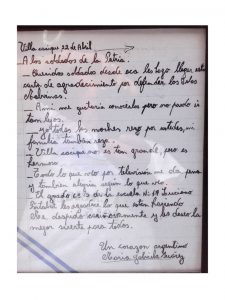 Villa cacique 22 de Abril
A los soldados de la Patria.
- Queridos soldados desde acá les hago llegar esta
carta de agradecimiento por defender las Islas
Malvinas.
- A mi me gustaria conocerlos pero no puedo is
tan lejos.
- yo todas las noches rezo por ustedes, mi
familia tambien reza.
- Villa cacique no es tan grande, pero es
hermoso
- Todo lo que veo por television me da pena
y tambien alegria segun lo que veo.
El grado es 6 de la escuela Nº 19
les agradece lo que estan haciendo
Me despido cariñosamente y les deseo la
mejor suerte para todos.
Un corazon argentino
Maria Gabriela Suárez